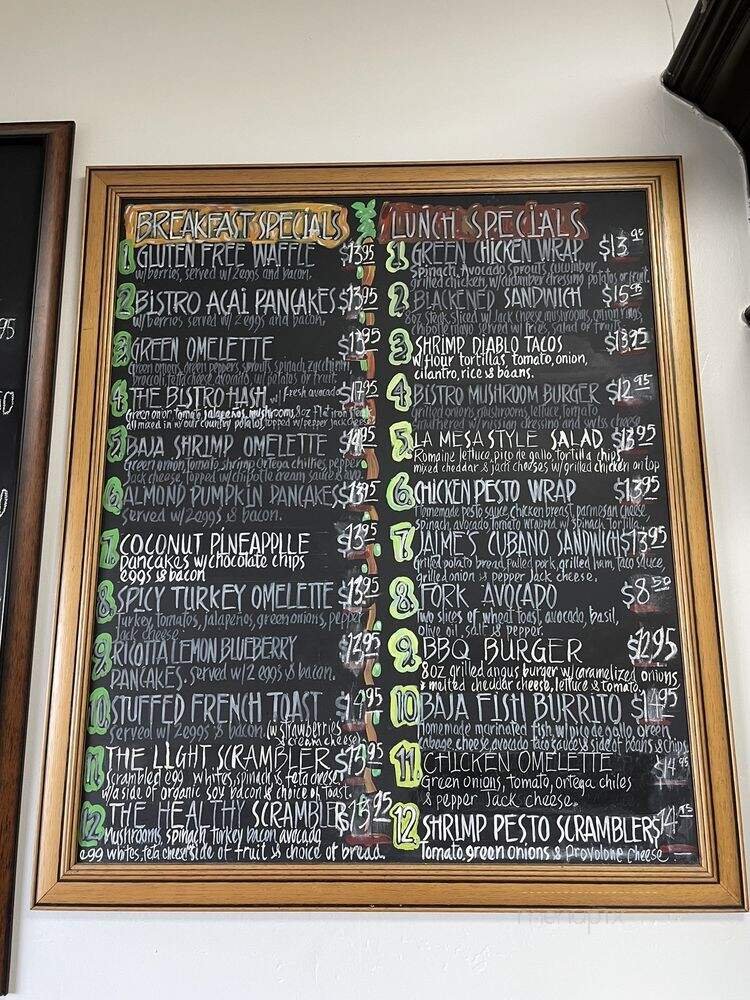 95
0
BREAKFAST SPECIALS
1 GLUTEN FREE WAFFLE $13.95
w/berries, served w/2eggs and bacon.
2 BISTRO ACAI PANCAKES $13.95
w/berries served w/2eggs and bacon.
3 GREEN OMELETTE $13.95
Green onions, green peppers, sprouts, spinach, zucchini,
broccoli, feta cheese, avocado, w/ potatos or fruit.
4 THE BISTRO HASH w/ fresh avocado $17.95
Green onion, tomato, jalapeños, mushrooms, 8oz Flat iron steak
all mixed in w/our country potatos, topped w/pepper jack cheese
5 BAJA SHRIMP OMELETTE $14.95
Green onion, tomato, shrimp, ortega chilies, pepper
Jack cheese topped w/chipotle cream sauce &
6 ALMOND PUMPKIN PANCAKES $13.95
served w/2eggs & bacon.
7. COCONUT PINEAPPLLE $13.95
pancakes w/chocolate chips
eggs & bacon
8 SPICY TURKEY OMELETTE $13.95
Turkey, tomatos, jalapeños, green onions, pepper
Jack cheese.
9 RICOTTA LEMON BLUEBERRY $12.95
PANCAKES. served w/2 eggs & bacon.
10. STUFFED FRENCH TOAST $14.95
served w/2eggs & bacon. (w/strawberries
& cream cheese)
11 THE LIGHT SCRAMBLER $13.95
Scrambled egg whites, spinach & feta cheese
w/a side of organic soy bacon & choice of toast.
12 THE HEALTHY SCRAMBLER $15.95
Mushrooms, spinach, turkey bacon, avocado
egg whites, feta cheese side of fruit & choice of bread.
LUNCH SPECIALS
1 GREEN CHICKEN WRAP $13.95
Spinach, Avocado, sprouts, cucumber
grilled chicken, w/cucumber dressing potatos or fruit.
2 BLACKENED SANDWICH $15.95
8oz steak, sliced w/Jack cheese mushrooms, onion rings,
chipotle mayo served w/fries, salad or fruit
3 SHRIMP DIABLO TACOS $13.95
w/flour tortillas, tomato, onion,
cilantro, rice & beans.
4 BISTRO MUSHROOM BURGER $12.95
Grilled onions, mushrooms, lettuce, tomato
w/ dressing w/swiss cheese
5. LA MESA STYLE SALAD $13.95
Romaine lettuce, pico de gallo, tortilla chips
mixed cheddar & jack cheeses w/grilled chicken on top
6. CHICKEN PESTO WRAP $13.95
Homemade pesto sauce, chicken breast, parmesan cheese
spinach, avocado, tomato wrapped w/spinach tortilla
7. JAIME'S CUBANO SANDWICH $13.95
Grilled potato bread, pulled pork, grilled ham, taco sauce,
grilled onion & pepper Jack cheese.
8. FORK AVOCADO $8.50
Two slices of wheat toast, avocado, basil,
olive oil, salt & pepper.
9. BBQ BURGER $12.95
8oz grilled angus burger w/caramelized onions
& melted cheddar cheese, lettuce & tomato.
10 BAJA FISH BURRITO $14.95
Homemade marinated fish, w/pico de gallo, green
cabage, cheese, avocado taco sauce & side of beans & chips.
11. CHICKEN OMELETTE $14.95
Green onions, tomato, ortega chiles
& pepper Jack cheese.
12 SHRIMP PESTO SCRAMBLER $14.95
Tomato, green onions & provolone cheese